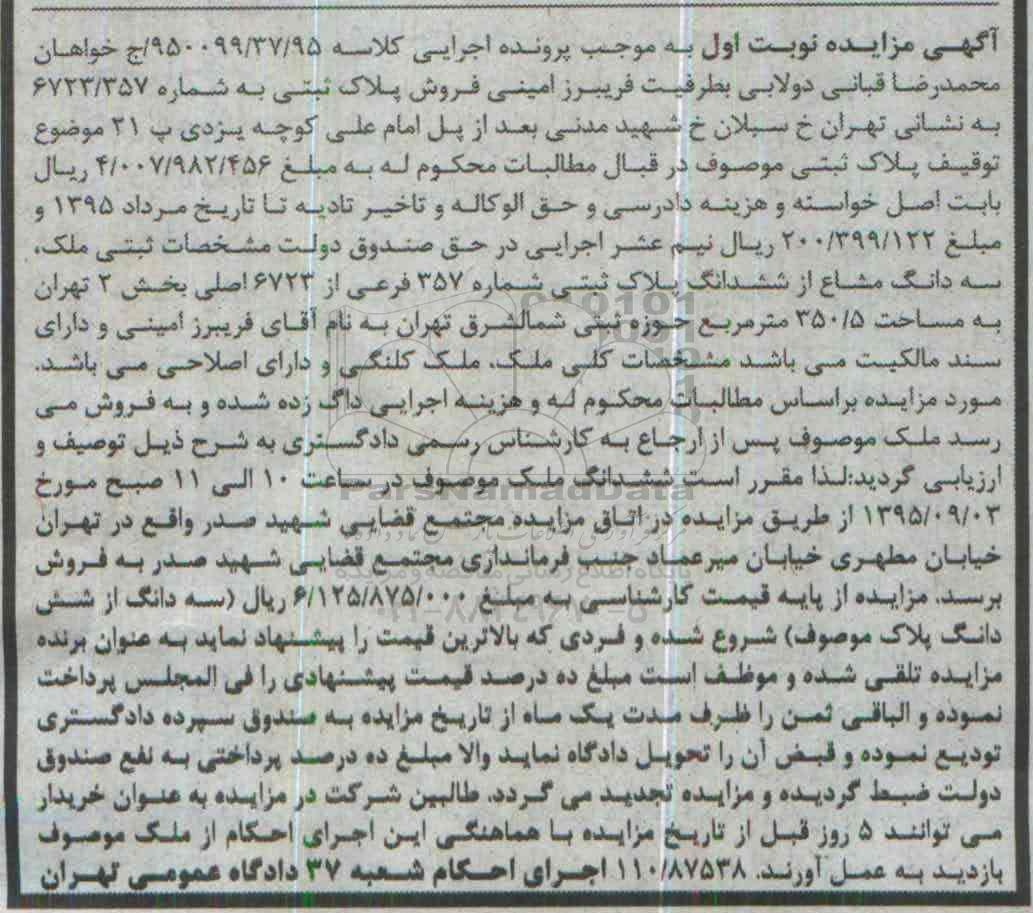 آگهی مزایده نوبت اول به موجب پرونده اجرایی کلاسه ۹۵۰۰۹۹/۳۷/۹۵/ج خواهان
محمدرضا قبانی دولابی بطرفیت فریبرز امینی فروش پلاک ثبتی به شماره ۶۷۲۳/۳۵۷
به نشانی تهران خ سبلان خ شهید مدنی بعد از پل امام علی کوچه یزدی پ ۲۱ موضوع
توقیف پلاک ثبتی موصوف در قبال مطالبات محکوم له به مبلغ ۴/۰۰۷/۹۸۲/۴۵۶ ریال
بابت اصل خواسته و هزینه دادرسی و حق الوکاله و تاخیر تادیه تا تاریخ مرداد ۱۳۹۵ و
مبلغ ۲۰۰/۳۹۹/۱۲۲ ریال نیم عشر اجرایی در حق صندوق دولت مشخصات ثبتی ملک،
سه دانگ مشاع از ششدانگ پلاک ثبتی شماره ۳۵۷ فرعی از ۶۷۲۳ اصلی بخش ۲ تهران
به مساحت ۳۵۰/۵ مترمربع حوزه ثبتی شمالشرق تهران به نام آقای فریبرز امینی و دارای
سند مالکیت می باشد مشخصات کلی ملک، ملک کلنگی و دارای اصلاحی می باشد.
مورد مزایده براساس مطالبات محکوم له و هزینه اجرایی داگ زده شده و به فروش می
رسد ملک موصوف پس از ارجاع به کارشناس رسمی دادگستری به شرح ذیل توصیف و
ارزیابی گردید:لذا مقرر است ششدانگ ملک موصوف در ساعت ۱۰ الی ۱۱ صبح مورخ
۱۳۹۵/۰۹/۰۳ از طریق مزایده در اتاق مزایده مجتمع قضایی شهید صدر واقع در تهران
خیابان مطهری خیابان میرعماد جنب فرمانداری مجتمع قضایی شهید صدر به فروش
برسد. مزایده از پایه قیمت کارشناسی به مبلغ ۶/۱۲۵/۸۷۵/۰۰۰ ریال (سه دانگ از شش
دانگ پلاک موصوف) شروع شده و فردی که بالاترین قیمت را پیشنهاد نماید به عنوان برنده
مزایده تلقی شده و موظف است مبلغ ده درصد قیمت پیشنهادی را فی المجلس پرداخت
نموده و الباقی ثمن را ظرف مدت یک ماه از تاریخ مزایده به صندوق سپرده دادگستری
تودیع نموده و قبض آن را تحویل دادگاه نماید والا مبلغ ده درصد پرداختی به نفع صندوق
دولت ضبط گردیده و مزایده تجدید می گردد. طالبین شرکت در مزایده به عنوان خریدار
می توانند ۵ روز قبل از تاریخ مزایده با هماهنگی این اجرای احکام از ملک موصوف
بازدید به عمل آورند. ۱۱۰/۸۷۵۳۸ اجرای احکام شعبه ۳۷ دادگاه عمومی تهران
ParsNamadData